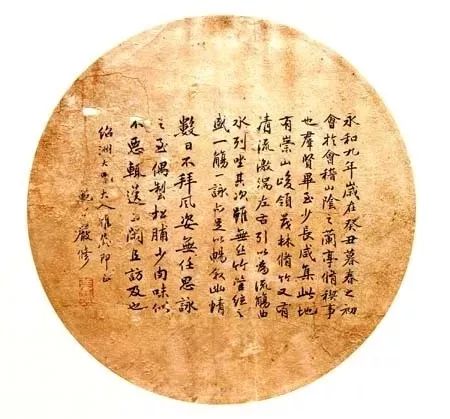 永和九年歲在癸丑暮春之初
會於會稽山陰之蘭亭脩稧事
也羣賢畢至少長咸集此地
有崇山峻領茂林脩竹又有
清流激湍左右引以為流觴曲
水列坐其次雖無絲竹管絃之
盛一觴一詠亦足以暢敘幽情
數日不拜風姿無任思詠
之至偶製松脯少尚味似
不惡輒送上閣且訪及也
紹洲大大人雅鑒即正
嚴修